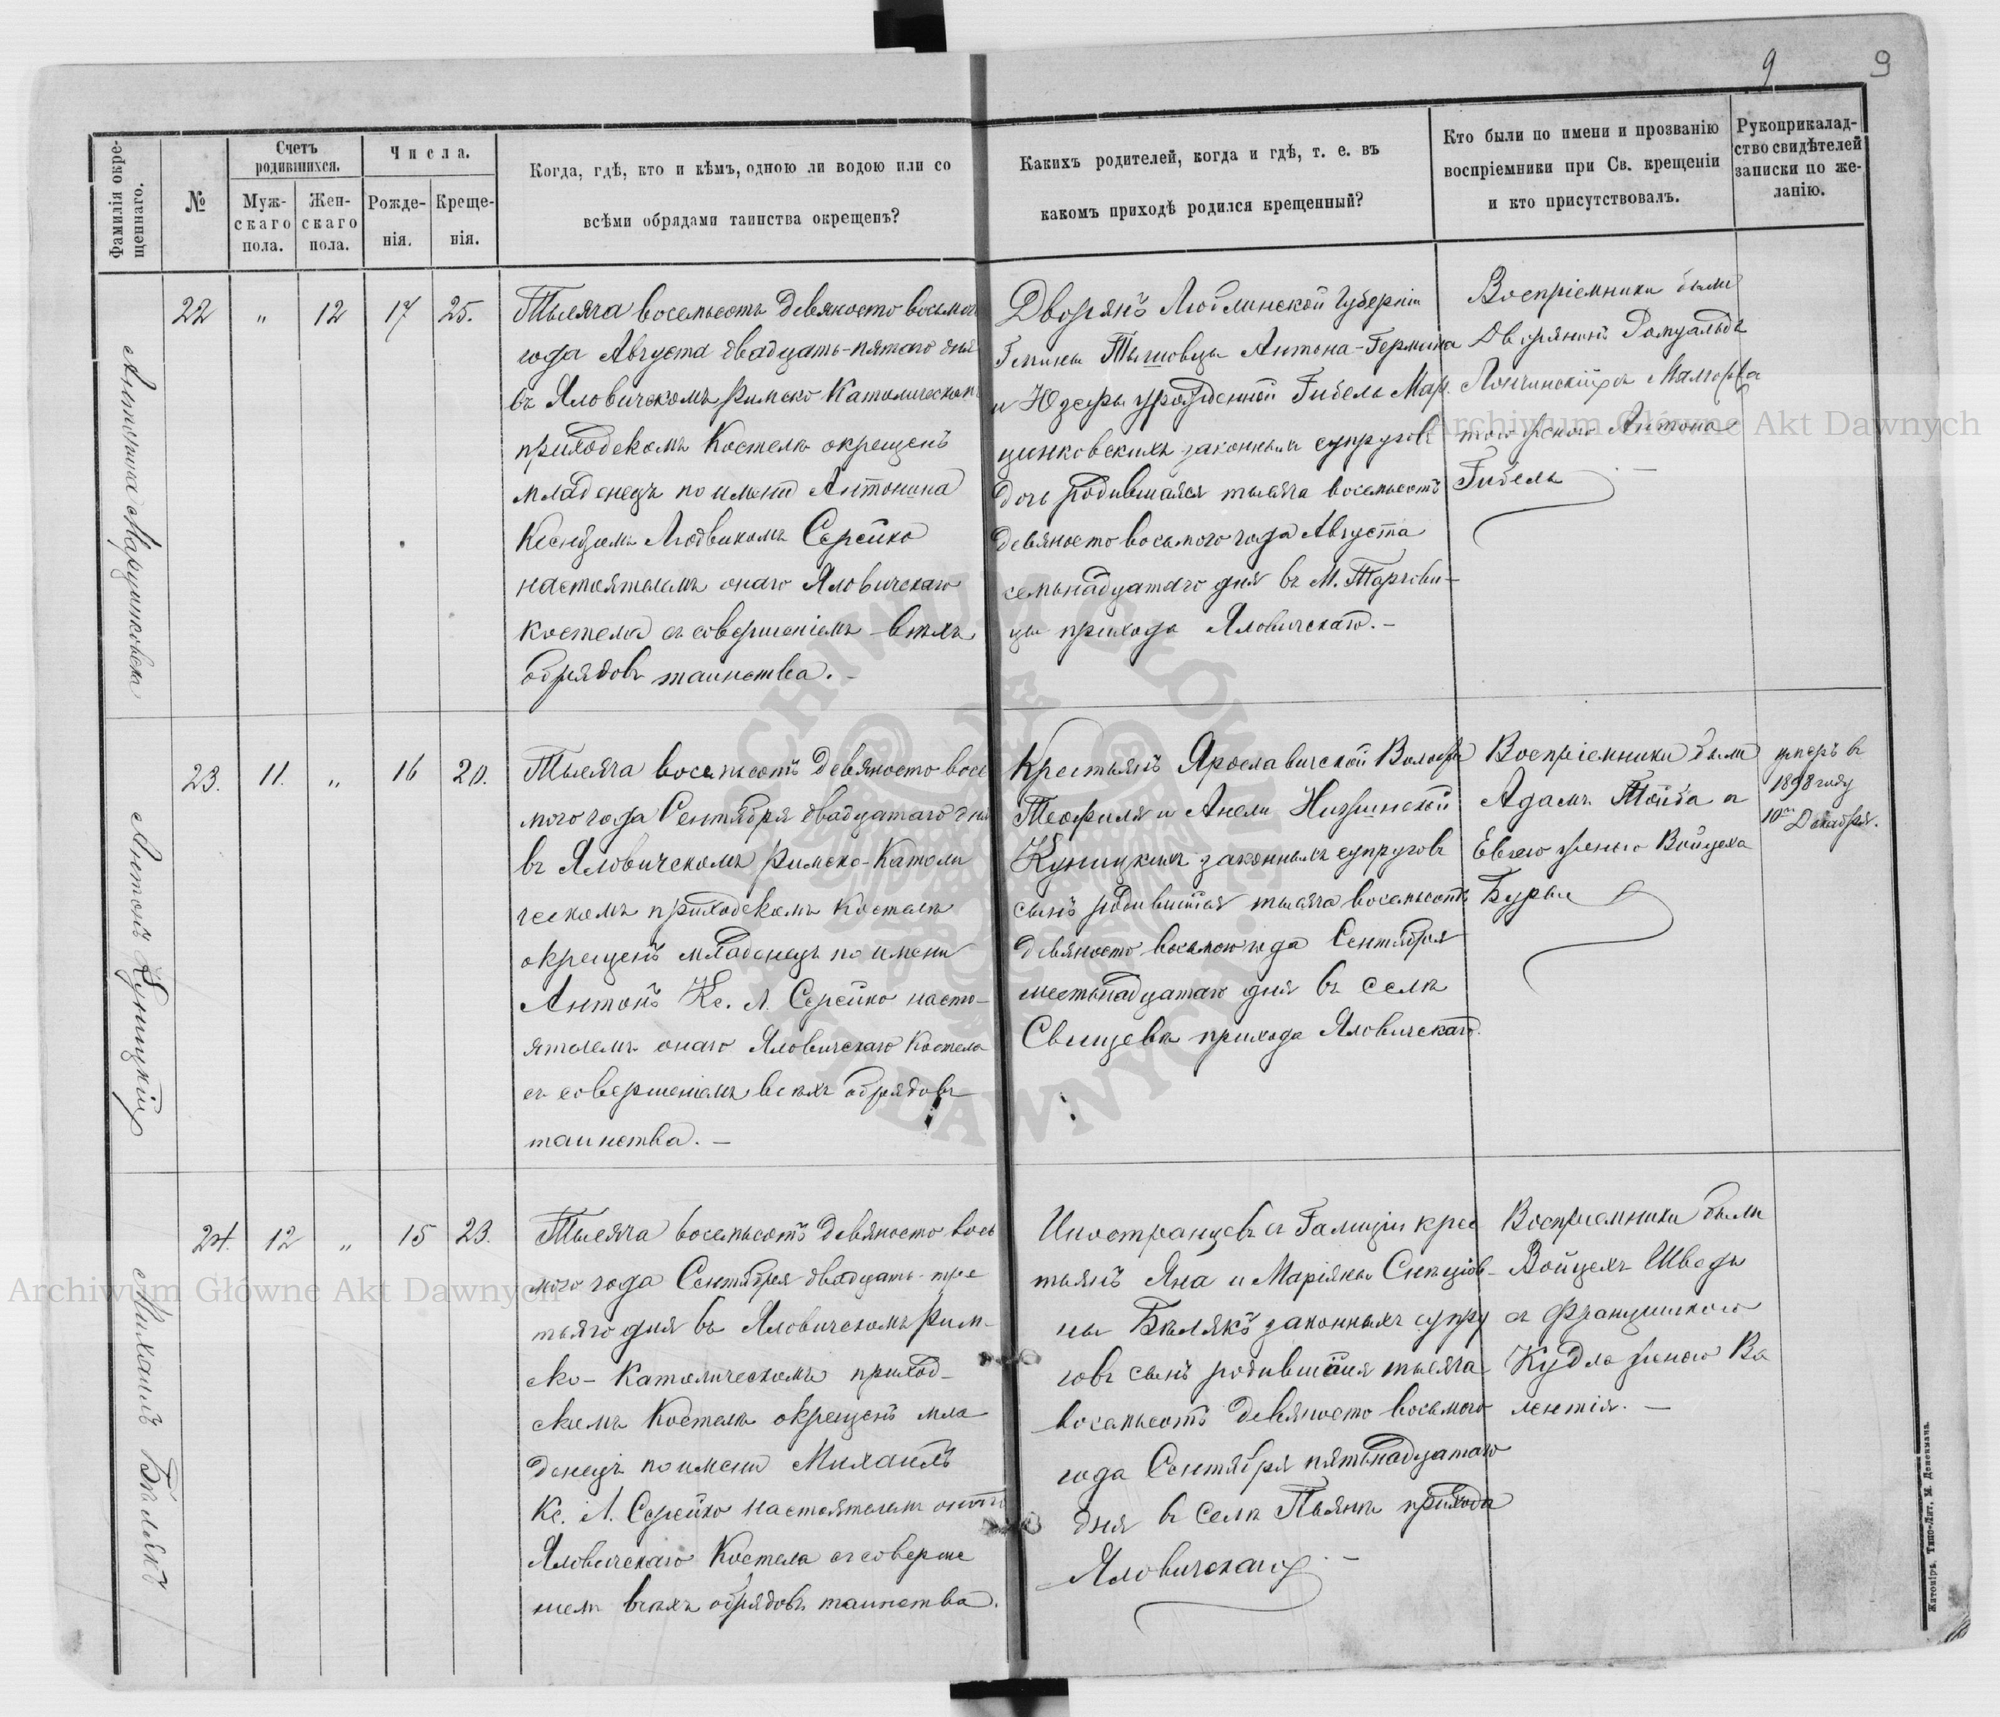 9 9
Фамилія окре-
щеннаго.
№
Счетъ
родившихся.
Муж-
скаго
пола.
Жен-
скаго
пола.
Числа.
Рожде-
нія.
Креще-
нія.
Когда, гдѣ, кто и кѣмъ, одною ли водою или со
всѣми обрядами таинства окрещенъ?
Какихъ родителей, когда и гдѣ, т. е. въ
какомъ приходѣ родился крещенный?
Кто были по имени и прозванію
воспріемники при Св. крещеніи
и кто присутствовалъ.
Рукоприклад-
ство свидѣтелей
записки по же-
ланію.
Антонина Марцинковска
22 " 12 17 25.
Тысяча восемьсотъ девяносто восьмого
года Августа двадцать-пятаго дня
въ Яловичскомъ Римско Католическомъ
приходскомъ Костелѣ окрещенъ
младенецъ по имени Антонина
Ксендзомъ Людвикомъ Серейко
настоятелемъ онаго Яловичскаго
костела съ совершеніемъ всѣхъ
обрядовъ таинства. -
Дворянъ Люблинской Губерніи
Гмины Тышовцы Антона-Гермина
и Юзефы урожденной Гибель Мар-
цинковскихъ законныхъ супруговъ
дочь родившаяся тысяча восемьсотъ
девяносто восьмого года Августа
семьнадцатаго дня въ М. Торгови-
цы прихода Яловичскаго. -
Воспріемники были
Дворянинъ Ромуальдъ
Антона
Гибель
Антонъ Куницкій
23. 11. " 16 20.
Тысяча восемьсотъ девяносто вось
мого года Сентября двадцатаго дня
въ Яловичскомъ Римско-Католи
ческомъ приходскомъ Костелѣ
окрещенъ младенецъ по имени
Антонъ Кс. Л. Серейко насто-
ятелемъ онаго Яловичскаго Костела
съ совершеніемъ всѣхъ обрядовъ
таинства. -
Крестьянъ Ярославичской Волости
Теофиля и Анели Нижинской
Куницкихъ законныхъ супруговъ
сынъ родившійся тысяча восемьсотъ
девяносто восьмого года Сентября
шестьнадцатаго дня въ селѣ
Свищевѣ прихода Яловичскаго.
Воспріемники были
Адамъ Тойба съ
Евою женою Войцеха
Буры
умеръ въ
1898 году
10го Декабря.
Михаилъ Бѣлякъ
24. 12 " 15 23.
Тысяча восемьсотъ девяносто вось
мого года Сентября двадцать-тре
тьяго дня въ Яловичскомъ Рим-
ско-Католическомъ приход-
скомъ Костелѣ окрещенъ мла
денецъ по имени Михаилъ
Кс. Л. Серейко настоятелемъ онаго
Яловичскаго Костела съ соверше
ніемъ всѣхъ обрядовъ таинства.
Иностранцевъ съ Галиціи крес
тьянъ Яна и Маріянны
Бѣлякъ законныхъ супру
говъ сынъ родившійся тысяча
восемьсотъ девяносто восьмого
года Сентября пятьнадцатаго
дня въ селѣ Пьянѣ прихода
Яловичскаго. -
Воспріемники были
Войцехъ Шведъ
съ Францишкою
Кудла женою Ва
лентія. -
Житоміръ. Типо-Лит. М. Дененмана.
Archiwum Główne Akt Dawnych
Archiwum Główne Akt Dawnych
ARCHIWUM GŁÓWNE AKT DAWNYCH